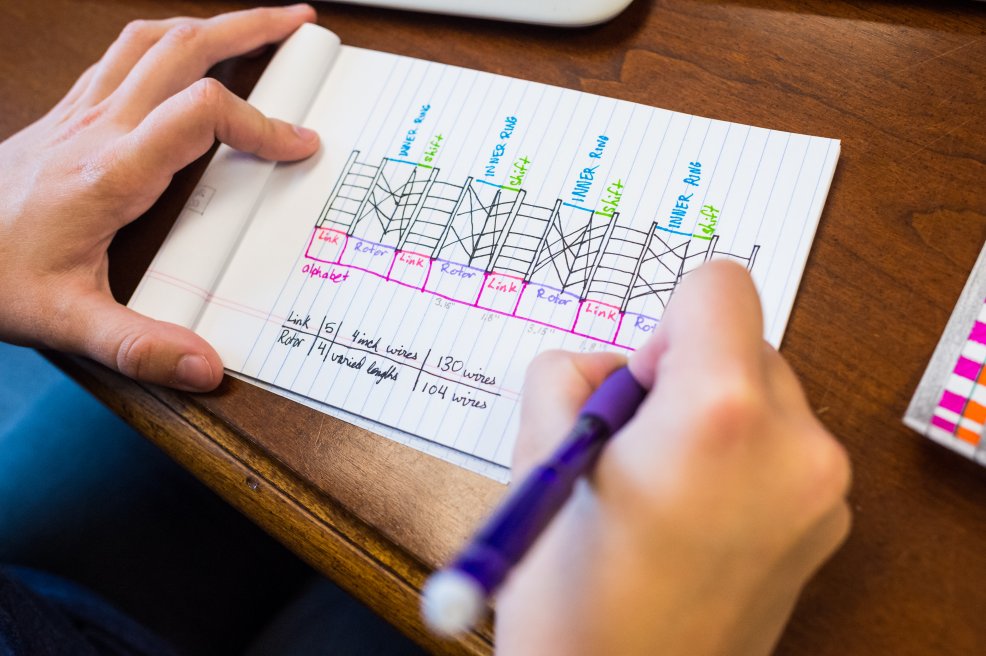 INNER RING shift INNER RING shift INNER RING shift INNER RING shift
Link Rotor Link Rotor Link Rotor Link
alphabet
Link 5 4 inch wires 130 wires
Rotor 4 varied lengths 104 wires